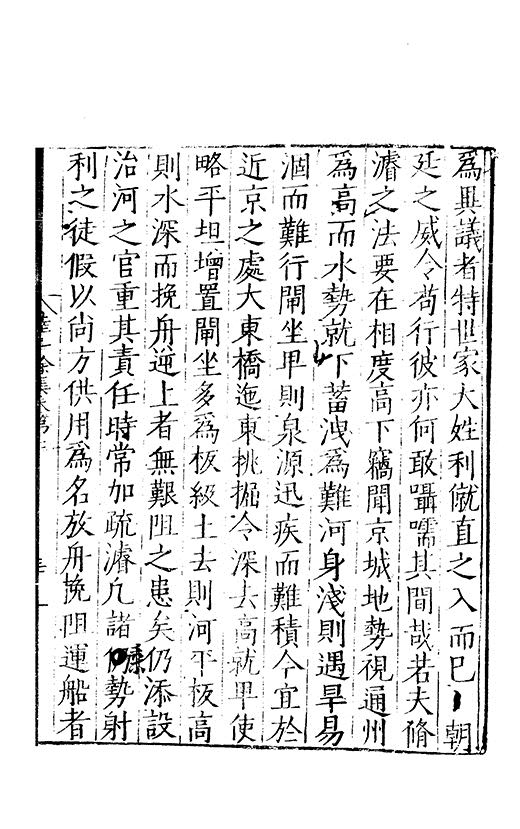 爲異議者特世家大姓利僦直之入而已朝
廷之威令苟行彼亦何敢囁嚅其間哉若夫脩
濬之法要在相度高下竊聞京城地勢視通州
爲高而水勢就下蓄洩爲難河身淺則遇旱易
涸而難行閘坐甲則泉源迅疾而難積今宜於
近京之處大東橋迤東挑掘令深去高就甲使
略平坦增置閘坐多爲板級土去則河平板高
則水深而挽舟逆上者無艱阻之患矣仍添設
治河之官重其責任時常加疏濬凡諸勢射
利之徒假以尚方供用爲名放舟挽阻運船者